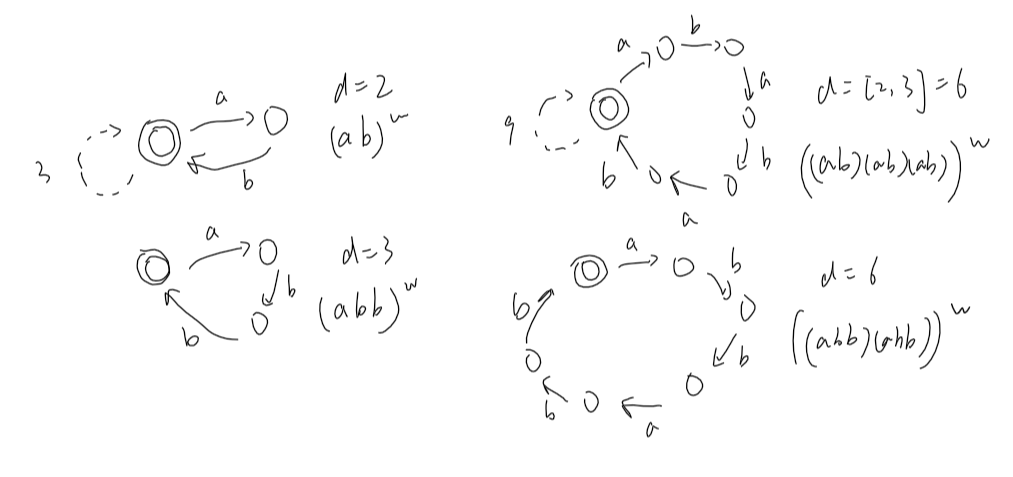 a
b
3
d=2
(ab)^w
a
b
b
d=3
(abb)^w
a
b
a
b
a
b
9
d=[2,3]=6
((ab)(ab)(ab))^w
a
b
b
a
b
b
d=6
((abb)(abb))^w